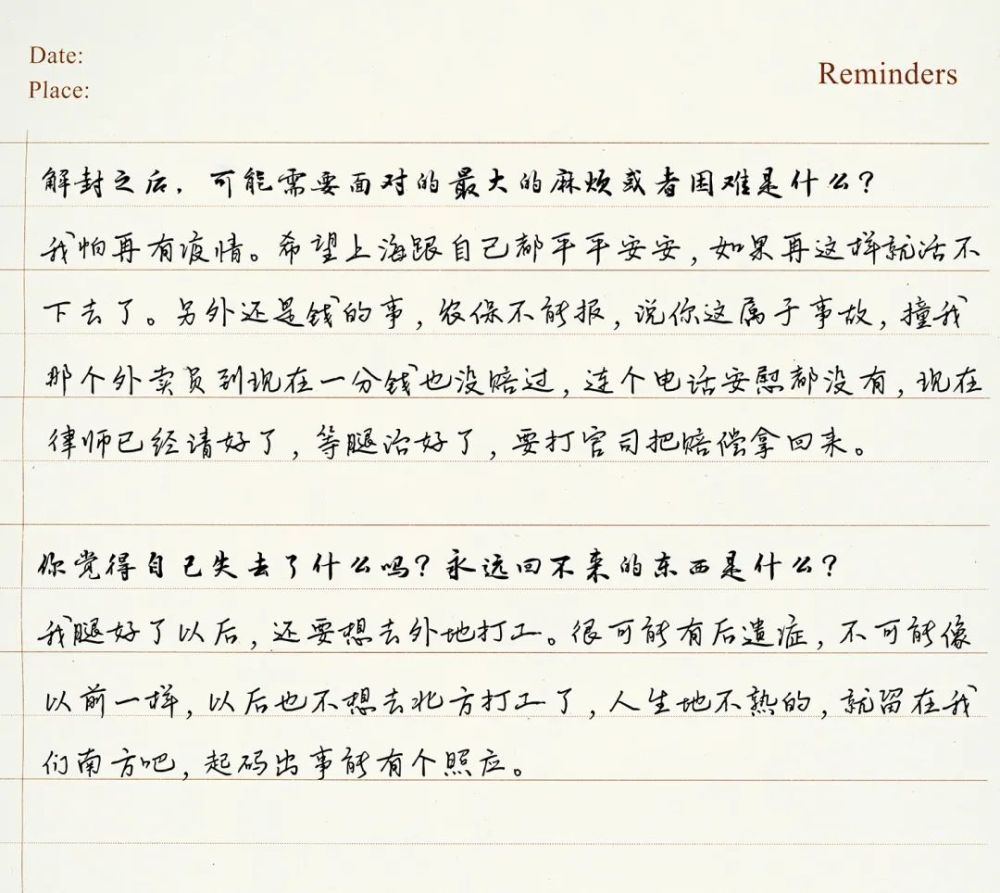 Date:
Place:
Reminders
解封之后，可能需要面对的最大的麻烦或者困难是什么？
我怕再有疫情。希望上海跟自己都平平安安，如果再这样就活不
下去了。另外还是钱的事，农保不能报，说你这属于事故，撞我
那个外卖员到现在一分钱也没赔过，连个电话安慰都没有，现在
律师已经请好了，等腿治好了，要打官司把赔偿拿回来。
你觉得自己失去了什么吗？永远回不来的东西是什么？
我腿好了以后，还要想去外地打工。很可能有后遗症，不可能像
以前一样，以后也不想去北方打工了，人生地不熟的，就留在我
们南方吧，起码出事能有个照应。